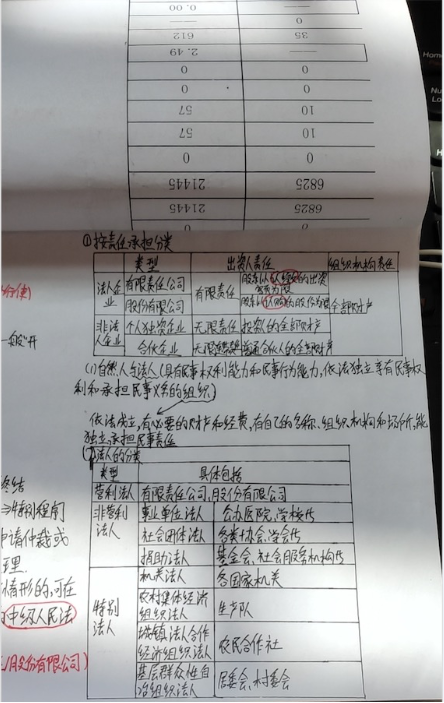 0.00 —
612 35
2.49 —
0 0
0 0
57 10
57 10
0 0
21445 6825
21445 6825
①按责任承担分类
类型 出资人责任 组织机构责任
法人企业 有限责任公司 有限责任 股东以认缴的出资额为限 全部财产
股份有限公司 股东以认购的股份为限
非法人企业 个人独资企业 无限责任 投资人的全部财产
合伙企业 无限 普通合伙人的全部财产
(1)自然人与法人(具有民事权利能力和民事行为能力,依法独立享有民事权
利和承担民事义务的组织。)
依法成立,有必要的财产和经费,有自己的名称、组织机构和场所,能
独立承担民事责任
法人的分类
类型 具体包括
营利法人 有限责任公司,股份有限公司
非营利法人 事业单位法人 公办医院,学校代
社会团体法人 各类协会,学会代
捐助法人 基金会,社会服务机构代
特别法人 机关法人 各国家机关
农村集体经济组织法人 生产队
城镇农村合作经济组织法人 农民合作社
基层群众性自治组织法人 居委会,村委会
终结
特别程序
申请仲裁或
理
情形的,可在
中级人民法
股份有限公司)